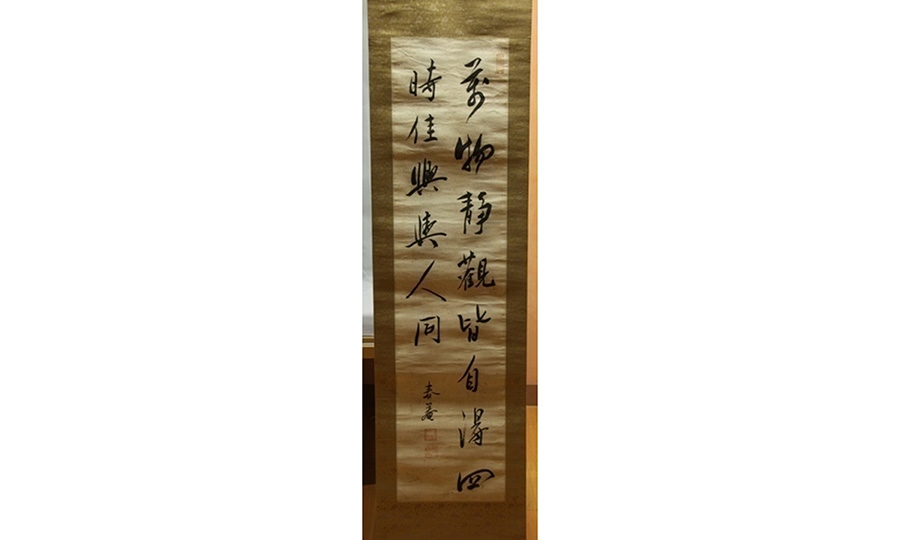 萬物靜觀皆自得四
時佳興與人同
春菴